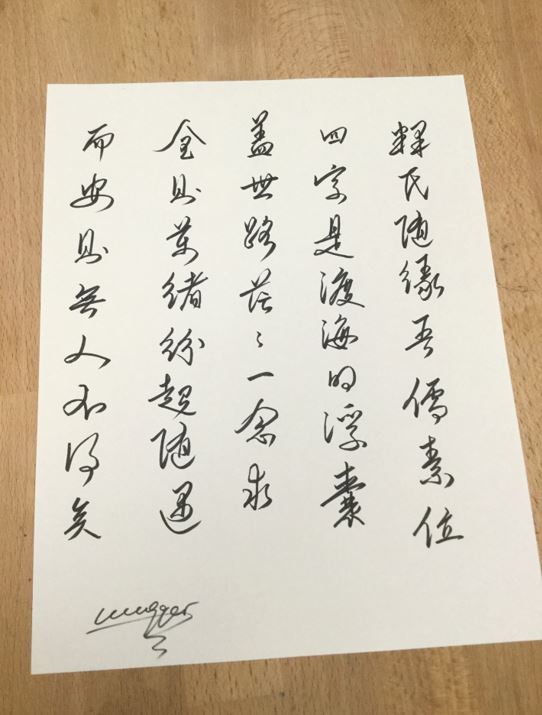 释氏随缘吾儒素位
四字是渡海的浮囊
盖世路茫々一念求
全则萬绪纷起随遇
而安则無入不得矣